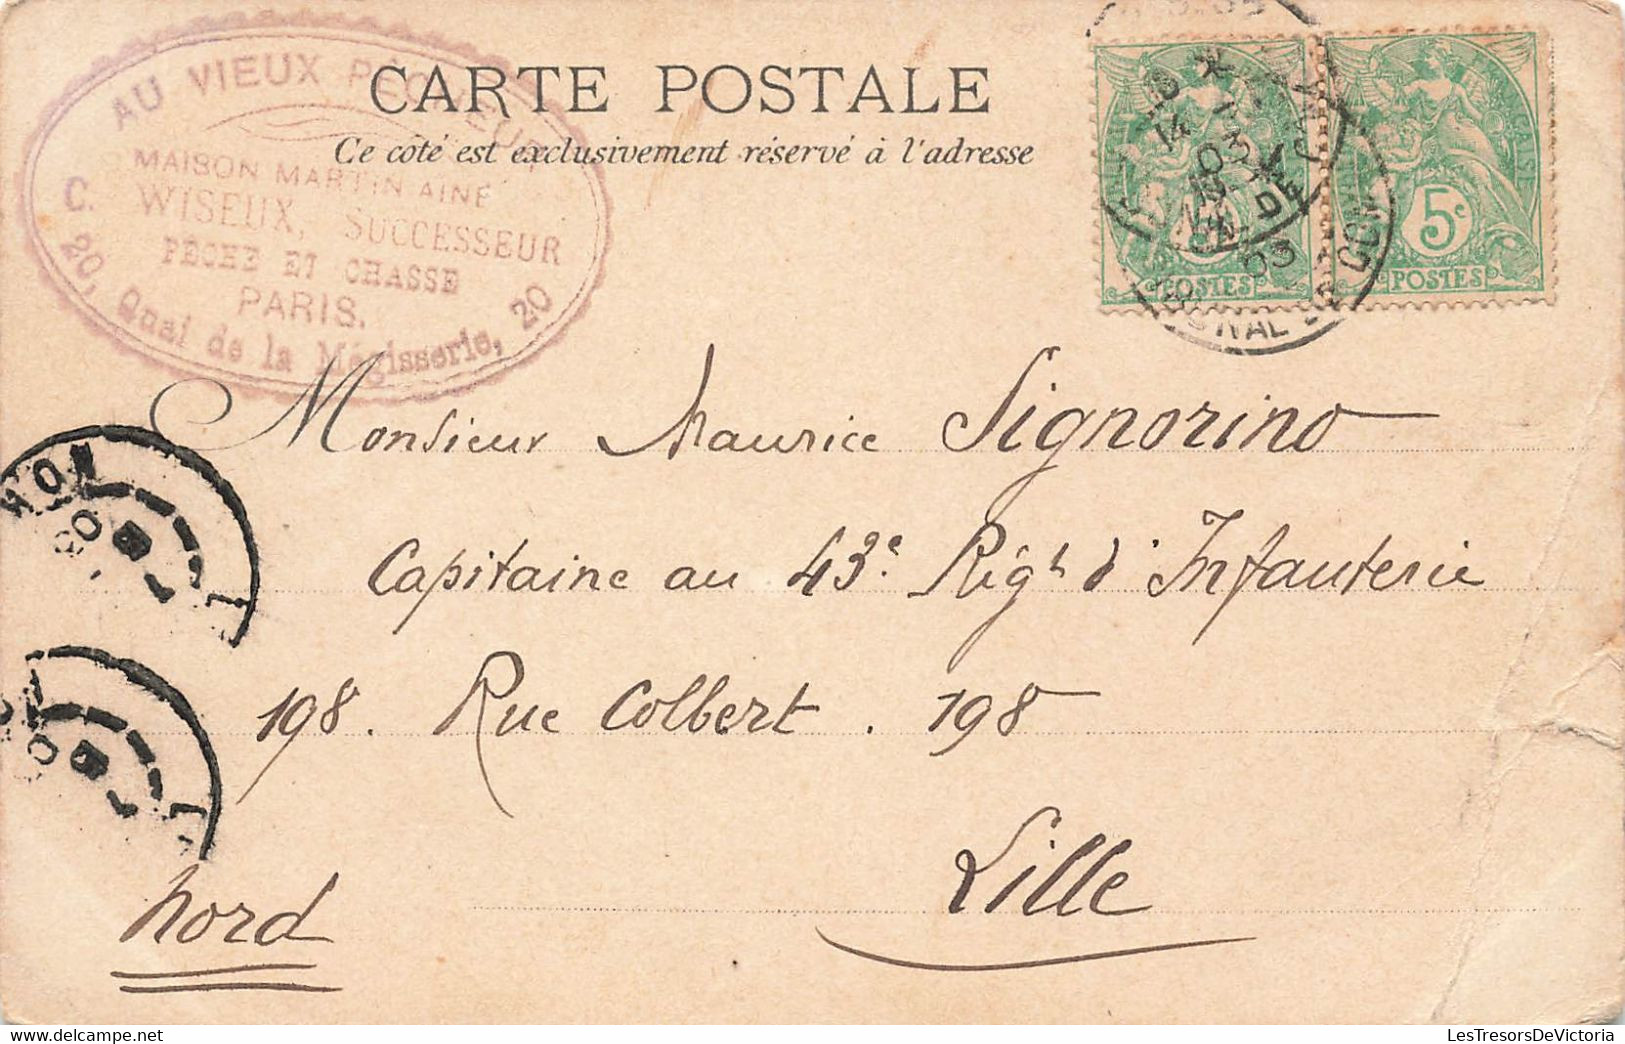 AU VIEUX PÊCHEUR
MAISON MARTIN AINÉ
C. WISEUX, SUCCESSEUR
PÊCHE ET CHASSE
PARIS.
20, Quai de la Mégisserie, 20
CARTE POSTALE
Ce côté est exclusivement réservé à l'adresse
14
03
03
5c
POSTES
POSTES
Monsieur Maurice Signorino
Capitaine au 43e Rigt d'Infanterie
198. Rue Colbert. 198
Lille
Nord
LesTresorsDeVictoria